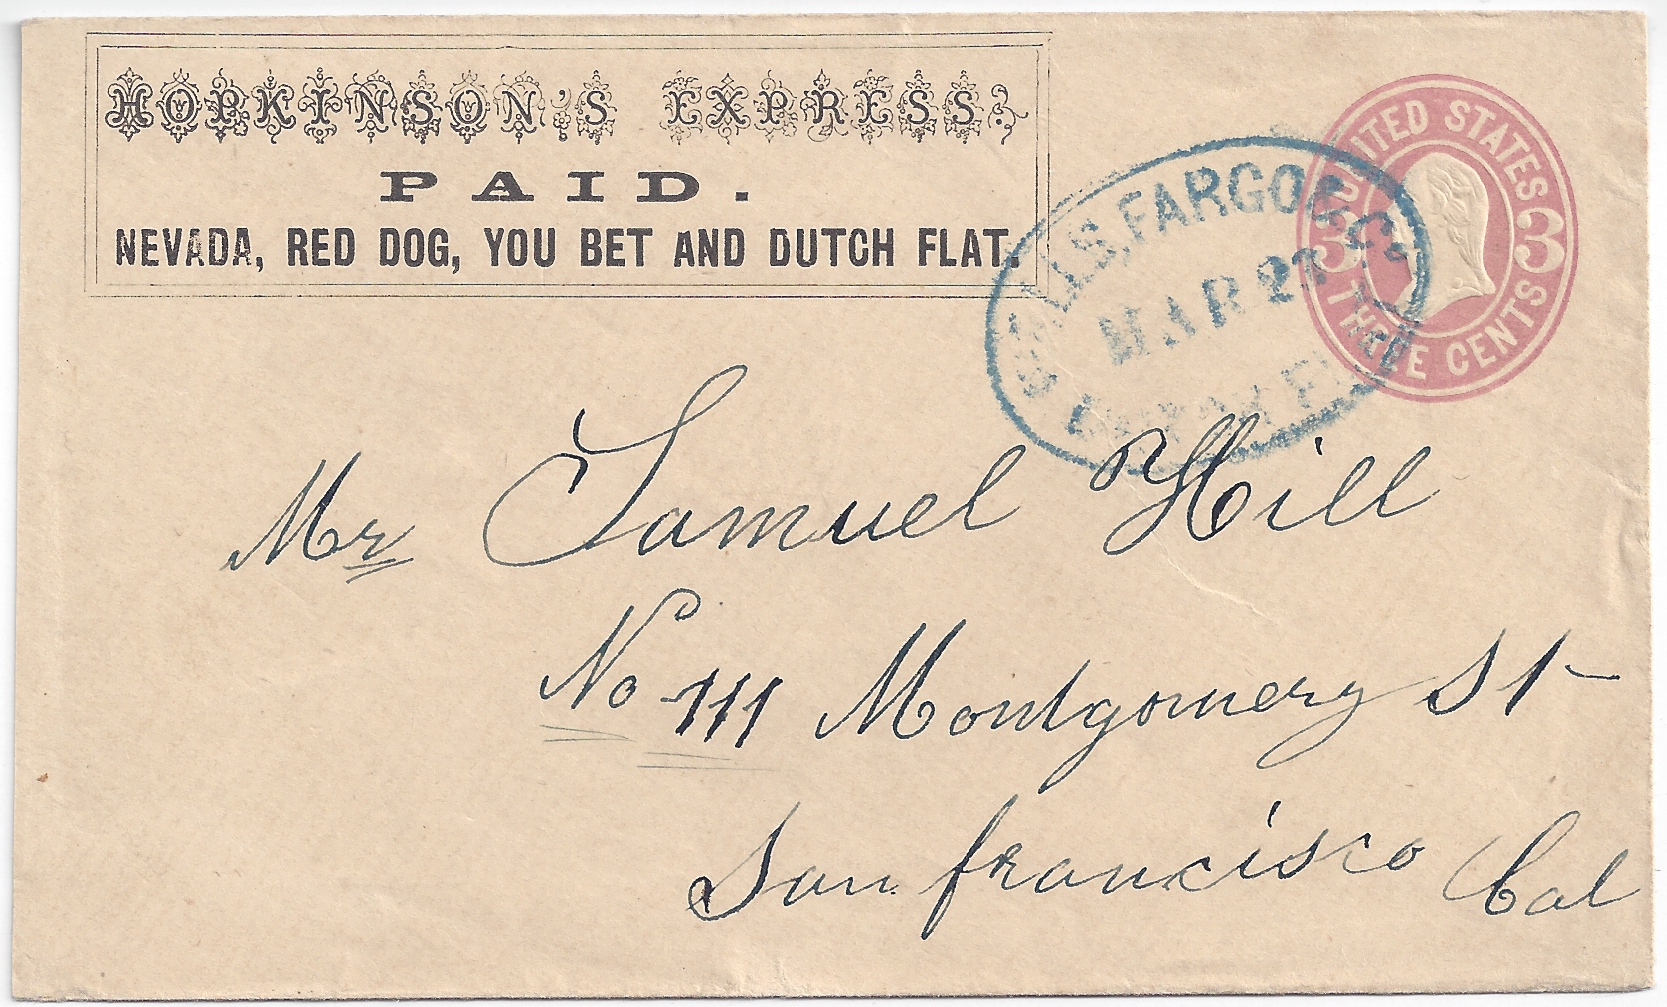 HOPKINSON'S EXPRESS.
PAID.
NEVADA, RED DOG, YOU BET AND DUTCH FLAT.
WELLS, FARGO & Co
MAR 22
DUTCH FLAT
UNITED STATES
3 3
THREE CENTS
Mr Samuel Hill
No 111 Montgomery St
San francisco Cal